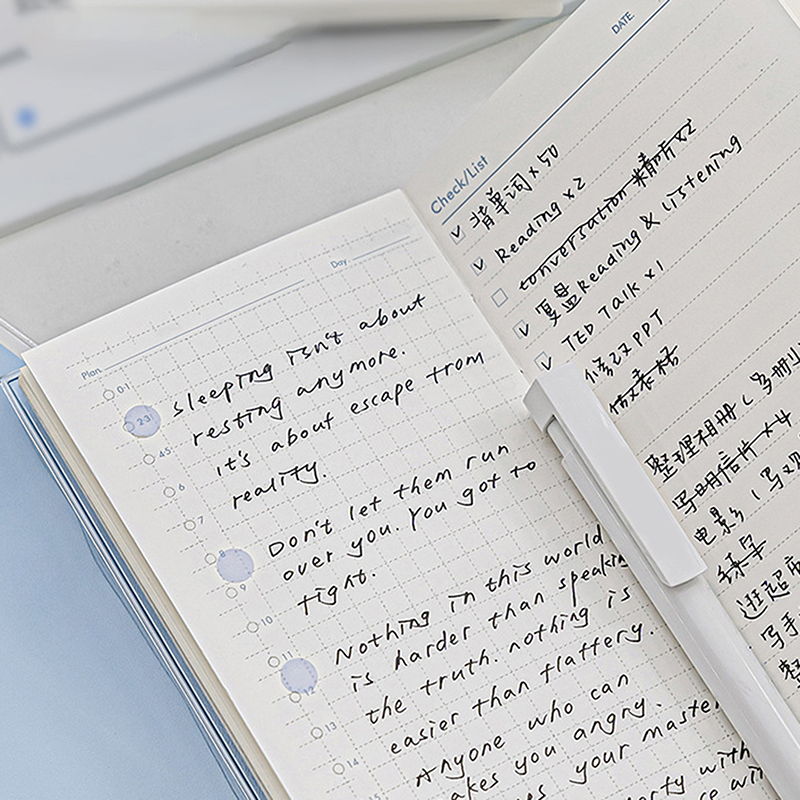 Day
Plan
sleeping isn't about
resting anymore.
it's about escape from
reality.
Don't let them run
over you. You got to
fight.
Nothing in this world
is harder than speaking
the truth. nothing is
easier than flattery.
Anyone who can
makes you angry.
your master
with
0·1
2·3
4·5
6
7
8
9
10
11
12
13
14
15
DATE
Check/List
背单词 x 50
Reading x2
conversation 精听 x2
复盘 Reading & Listening
TED Talk x1
修改 PPT
做表格
整理相册 (写册
写明信片 x4
电影 (写
练字
逛超市
写手
整